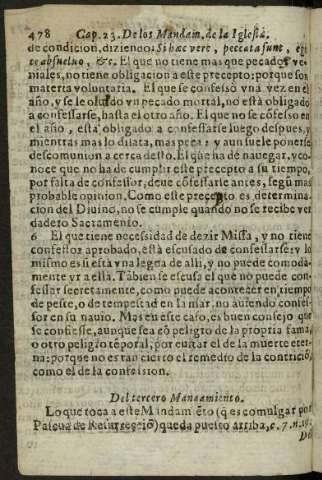 478 Cap. 23. De los Mandam. de la Iglesia.
de condicion, diziendo: Si hæc vere, peccata sunt, ego
te absueluo, &c. El que no tiene mas que pecados ve-
niales, no tiene obligacion a este precepto; porque son
materia voluntaria. El que se confessò vna vez en el
año, y se le oluidò vn pecado mortal, no està obligado
a confessarse, hasta el otro año. El que no se cõfesso en
el año, està obligado a confessarse luego despues, y
mientras mas lo dilata, mas peca: y aun suele ponerse
descomunion a cerca desto. El que ha de nauegar, y co-
noce que no ha de cumplir este precepto a su tiempo,
por falta de confessor, deue cõfessarse antes, segũ mas
probable opinion. Como este precepto es determina-
cion del Diuino, no se cumple quando no se recibe ver
dadero Sacramento.
6 El que tiene necessidad de dezir Missa, y no tiene
confessor aprobado, està escusado de confessarse: y lo
mismo es si està vna legua de alli, y no puede comoda-
mente yr a ella. Tãbien se escusa el que no puede con-
fessar secretamente, como puede acontecer en tiempo
de peste, o de tempestad en la mar, no auiendo confes-
sor en su nauio. Mas en este caso, es buen consejo que
se confiesse, aunque sea cõ peligro de la propria fama,
o otro peligro tẽporal, por euitar el de la muerte eter-
na: porque no es tan cierto el remedio de la contriciõ,
como el de la confession.
Del tercero Mandamiento.
Lo que toca a este Mandamiẽto (q̃ es comulgar por
Pascua de Resurrecciõ) queda puesto arriba, c. 7. n. 19.